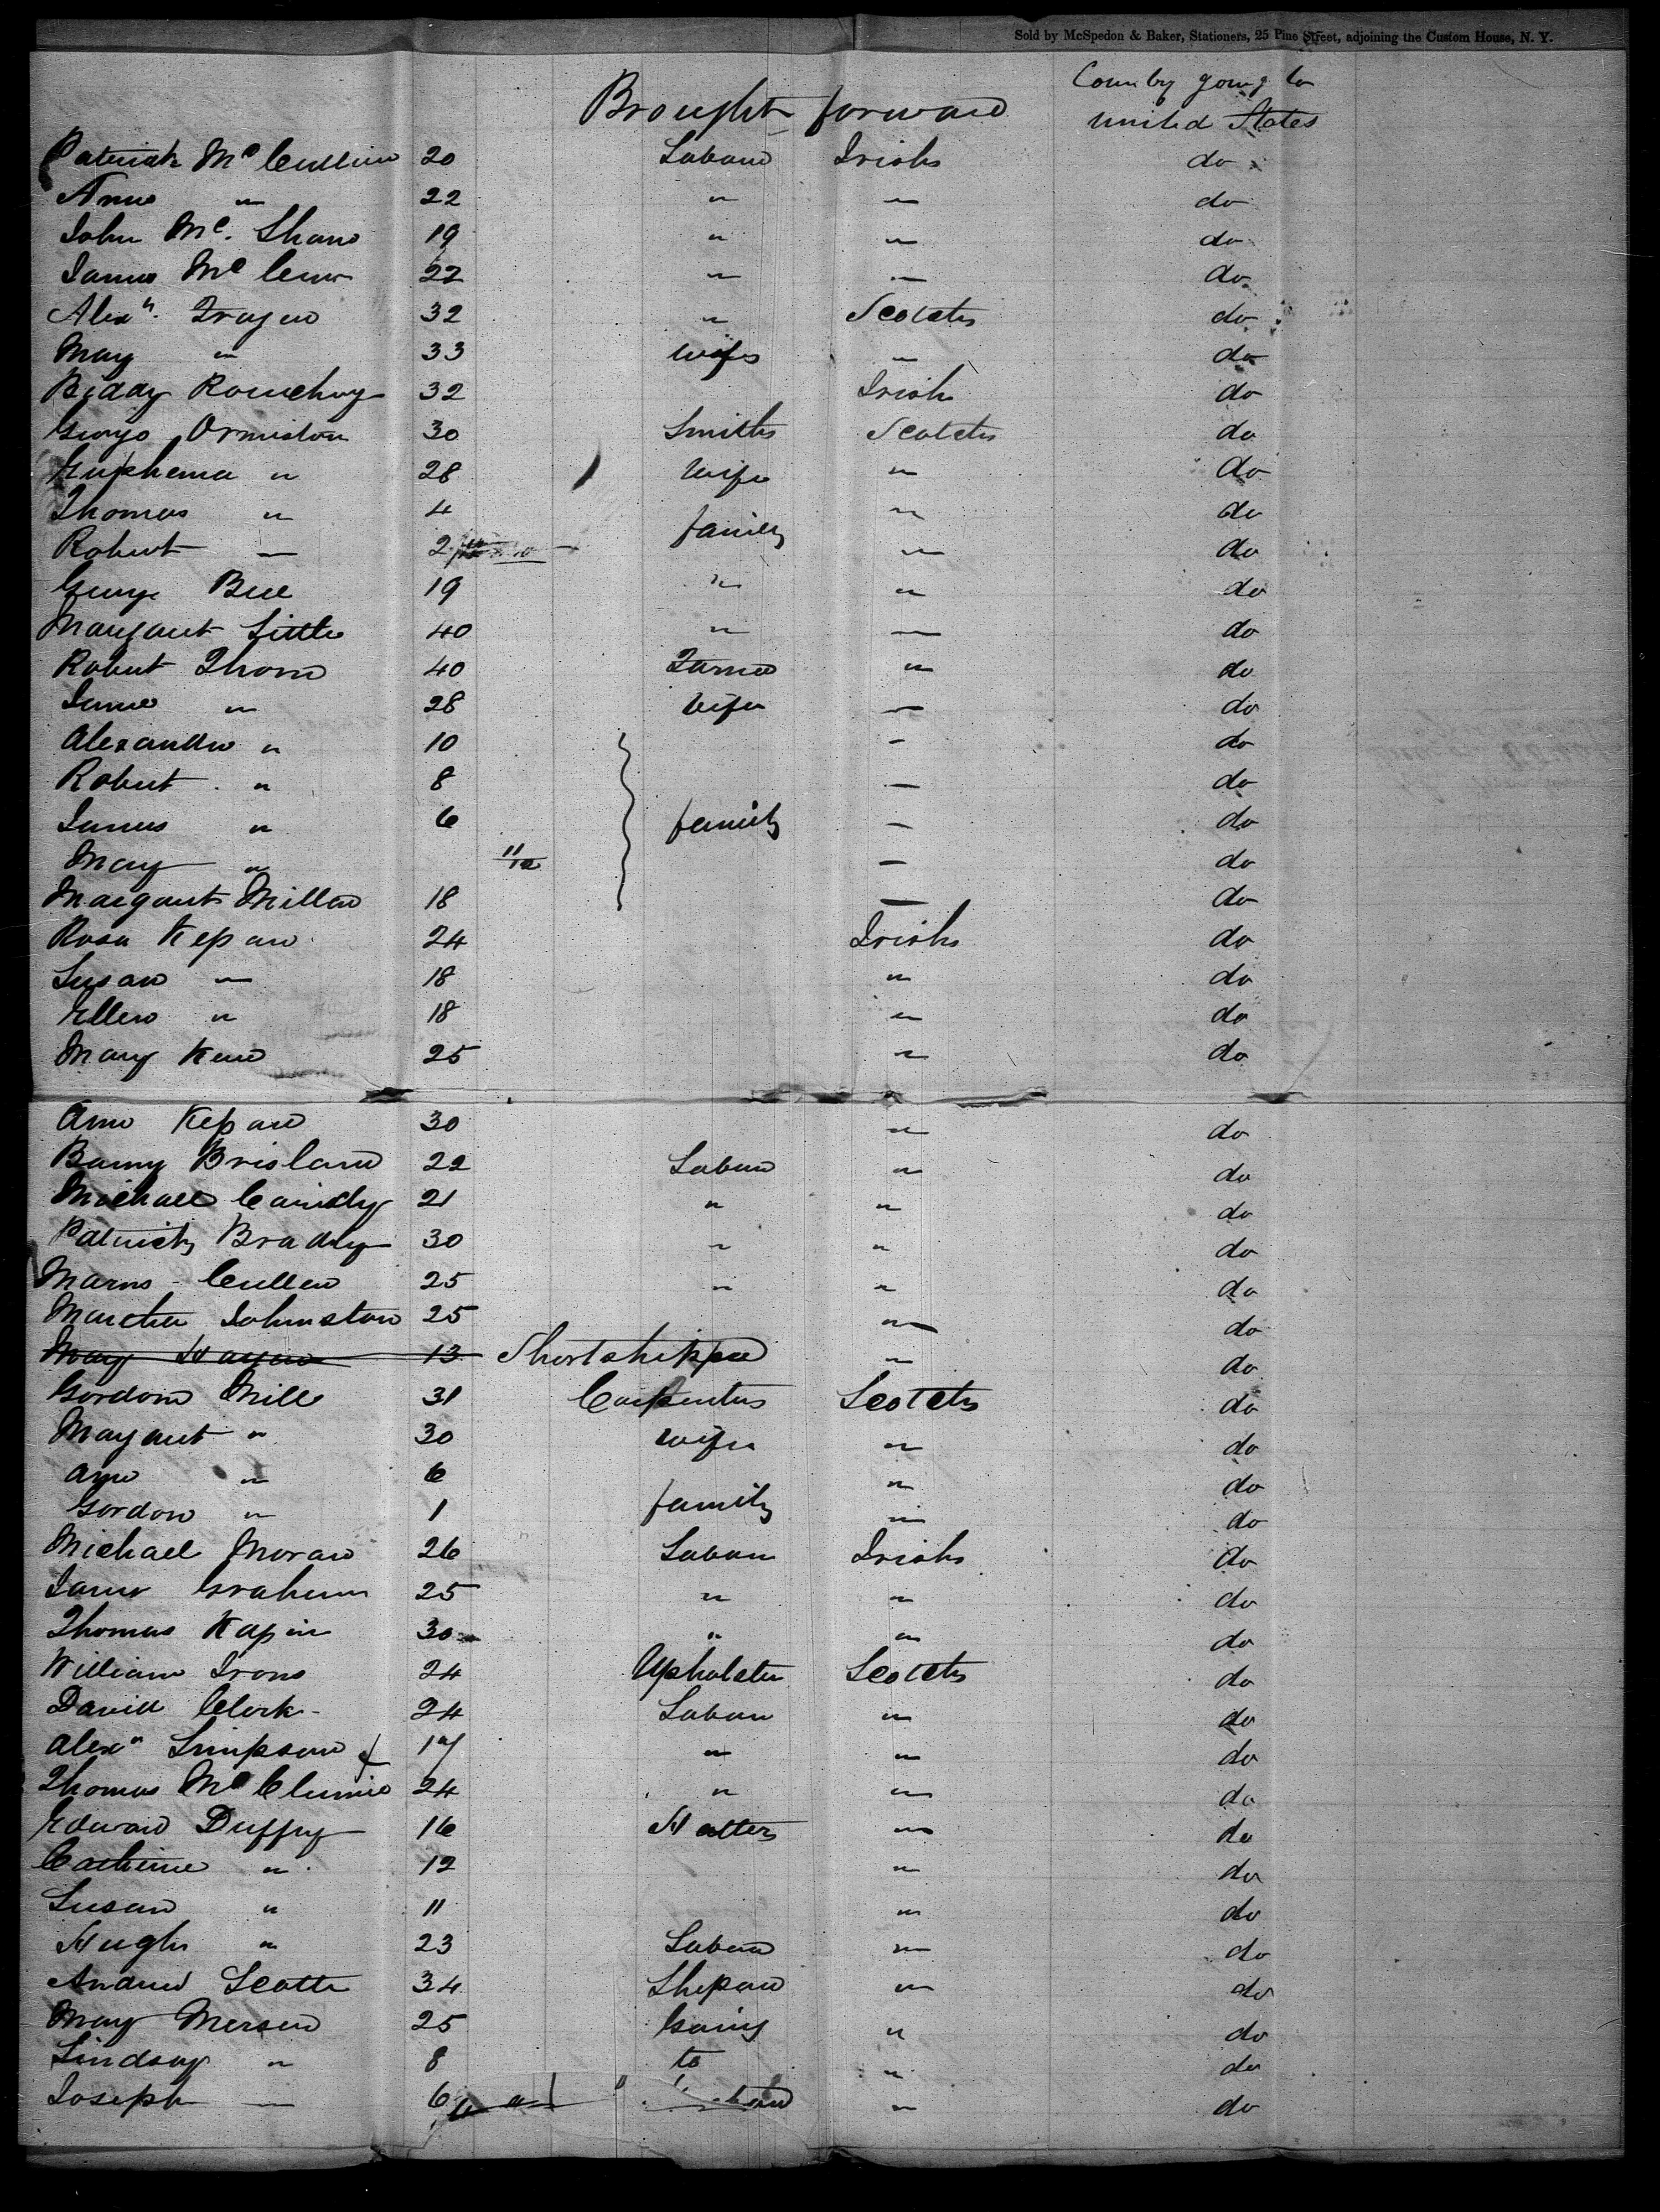 Sold by McSpedon & Baker, Stationers, 25 Pine Street, adjoining the Custom House, N. Y.
Brought forward Country going to
United States
Patrick Mc 20 Labour Irish do
Anne " 22 " " do
John Mc. Shane 19 " " do
James Mc 22 " " do
Alexr. 32 " Scotch do
Mary " 33 wife " do
Biddy 32 Irish do
George Ormiston 30 Smith Scotch do
Euphemia " 28 Wife " do
Thomas " 4 family " do
Robert " 2 " do
George 19 " " do
Margaret Little 40 " " do
Robert Thom 40 Farmer " do
" 28 Wife " do
Alexander " 10 " do
Robert " 8 " do
James " 6 family " do
Mary " 11/12 " do
Margaret Millar 18 " do
Rosa Kepan 24 Irish do
Susan " 18 " do
Ellen " 18 " do
Mary 25 " do
Ann Kepan 30 " do
Barny Brisland 22 Labour " do
Michael 21 " " do
Patrick Brady 30 " " do
Cullen 25 " " do
Martha Johnston 25 " do
Mary 13 Shortshipped " do
Gordon Mill 31 Carpenter Scotch do
Margaret " 30 wife " do
Ann " 6 " do
Gordon " 1 family " do
Michael Moran 26 Labour Irish do
James Graham 25 " " do
Thomas 30 " " do
William Irons 24 Upholster Scotch do
David Clark 24 Labour " do
Alexr Simpson 17 " " do
Thomas Mc 24 " " do
Edward Duffy 16 Hatter " do
Catherine " 12 " do
Susan " 11 " do
Hugh " 23 Labour " do
Andrew Scott 34 " do
Mary 25 Going " do
Lindsay " 8 to " do
Joseph " 6 " do